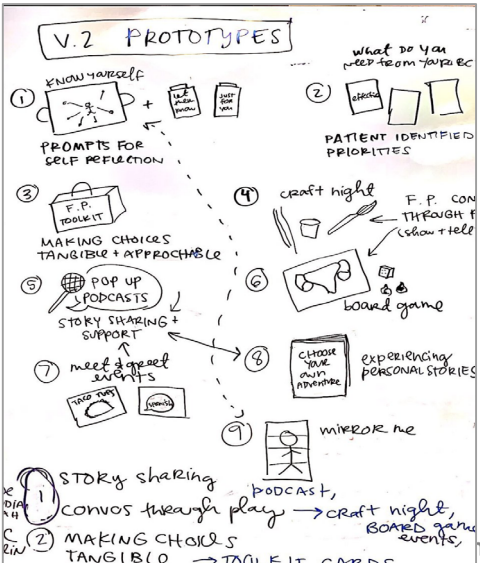 V.2 PROTOTYPES
KNOW YOURSELF
① + let them know JUST for you
PROMPTS FOR
SELF REFLECTION
What DO you
NEED FROM YOUR BC
② effective
PATIENT IDENTIFIED
PRIORITIES
③ F.P.
TOOLKIT
MAKING CHOICES
TANGIBLE + APPROCHABLE
④ craft night
F.P. CON
THROUGH P
(show + tell
⑤ POP UP
PODCASTS
STORY SHARING +
SUPPORT
⑥
board game
⑦ meet & greet
events
TACO TUES
⑧ CHOOSE
YOUR
OWN
ADVENTURE
experiencing
PERSONAL STORIES
⑨ MIRROR ME
1 STORY sharing
PODCAST,
convos through play → craft night,
BOARD game
events,
② MAKING CHOICES
TANGIBLE → TOOLKIT CARDS